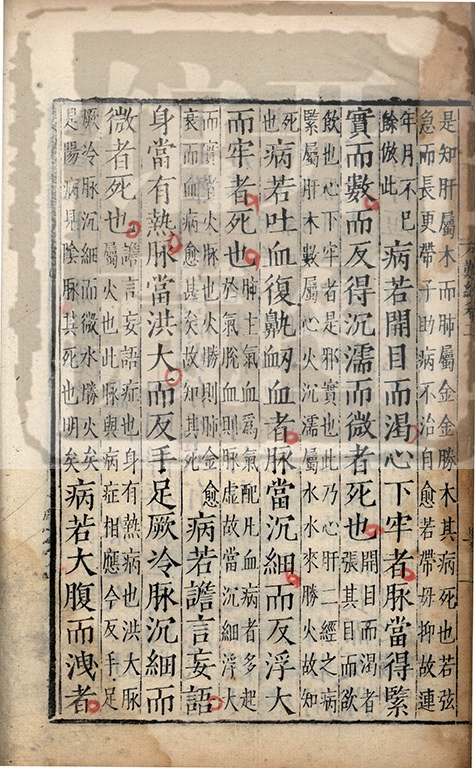 是知肝屬木而肺屬金金勝木其病死也若弦
急而長更帶子助病不治自愈若帶毋抑故連
年月不已
餘倣此
病若開目而渴心下牢者脉當得緊
實而數而反得沉濡而微者死也
開目而渴者
張其目而欲
飲也心下牢者是邪實也此乃心肝二經之病
緊屬肝木數屬心火沉濡屬水水來勝火故知
死
也
病若吐血復鼽衂血者脉當沉細而反浮大
而牢者死也
肺主氣血爲氣配凡血病者多起
於氣脫血則脉虛故當沉細浮大
而實脉也火勝則肺金愈
衰而血病愈甚矣故知其死
病若譫言妄語
身當有熱脉當洪大而反手足厥冷脉沉細而
微者死也
譫言妄語症也身有熱病也洪大脉
屬火也此脉與病症相應今反手足
厥冷脉沉細而微水勝火矣
是陽病見陰脉其死也明矣
病若大腹而洩者